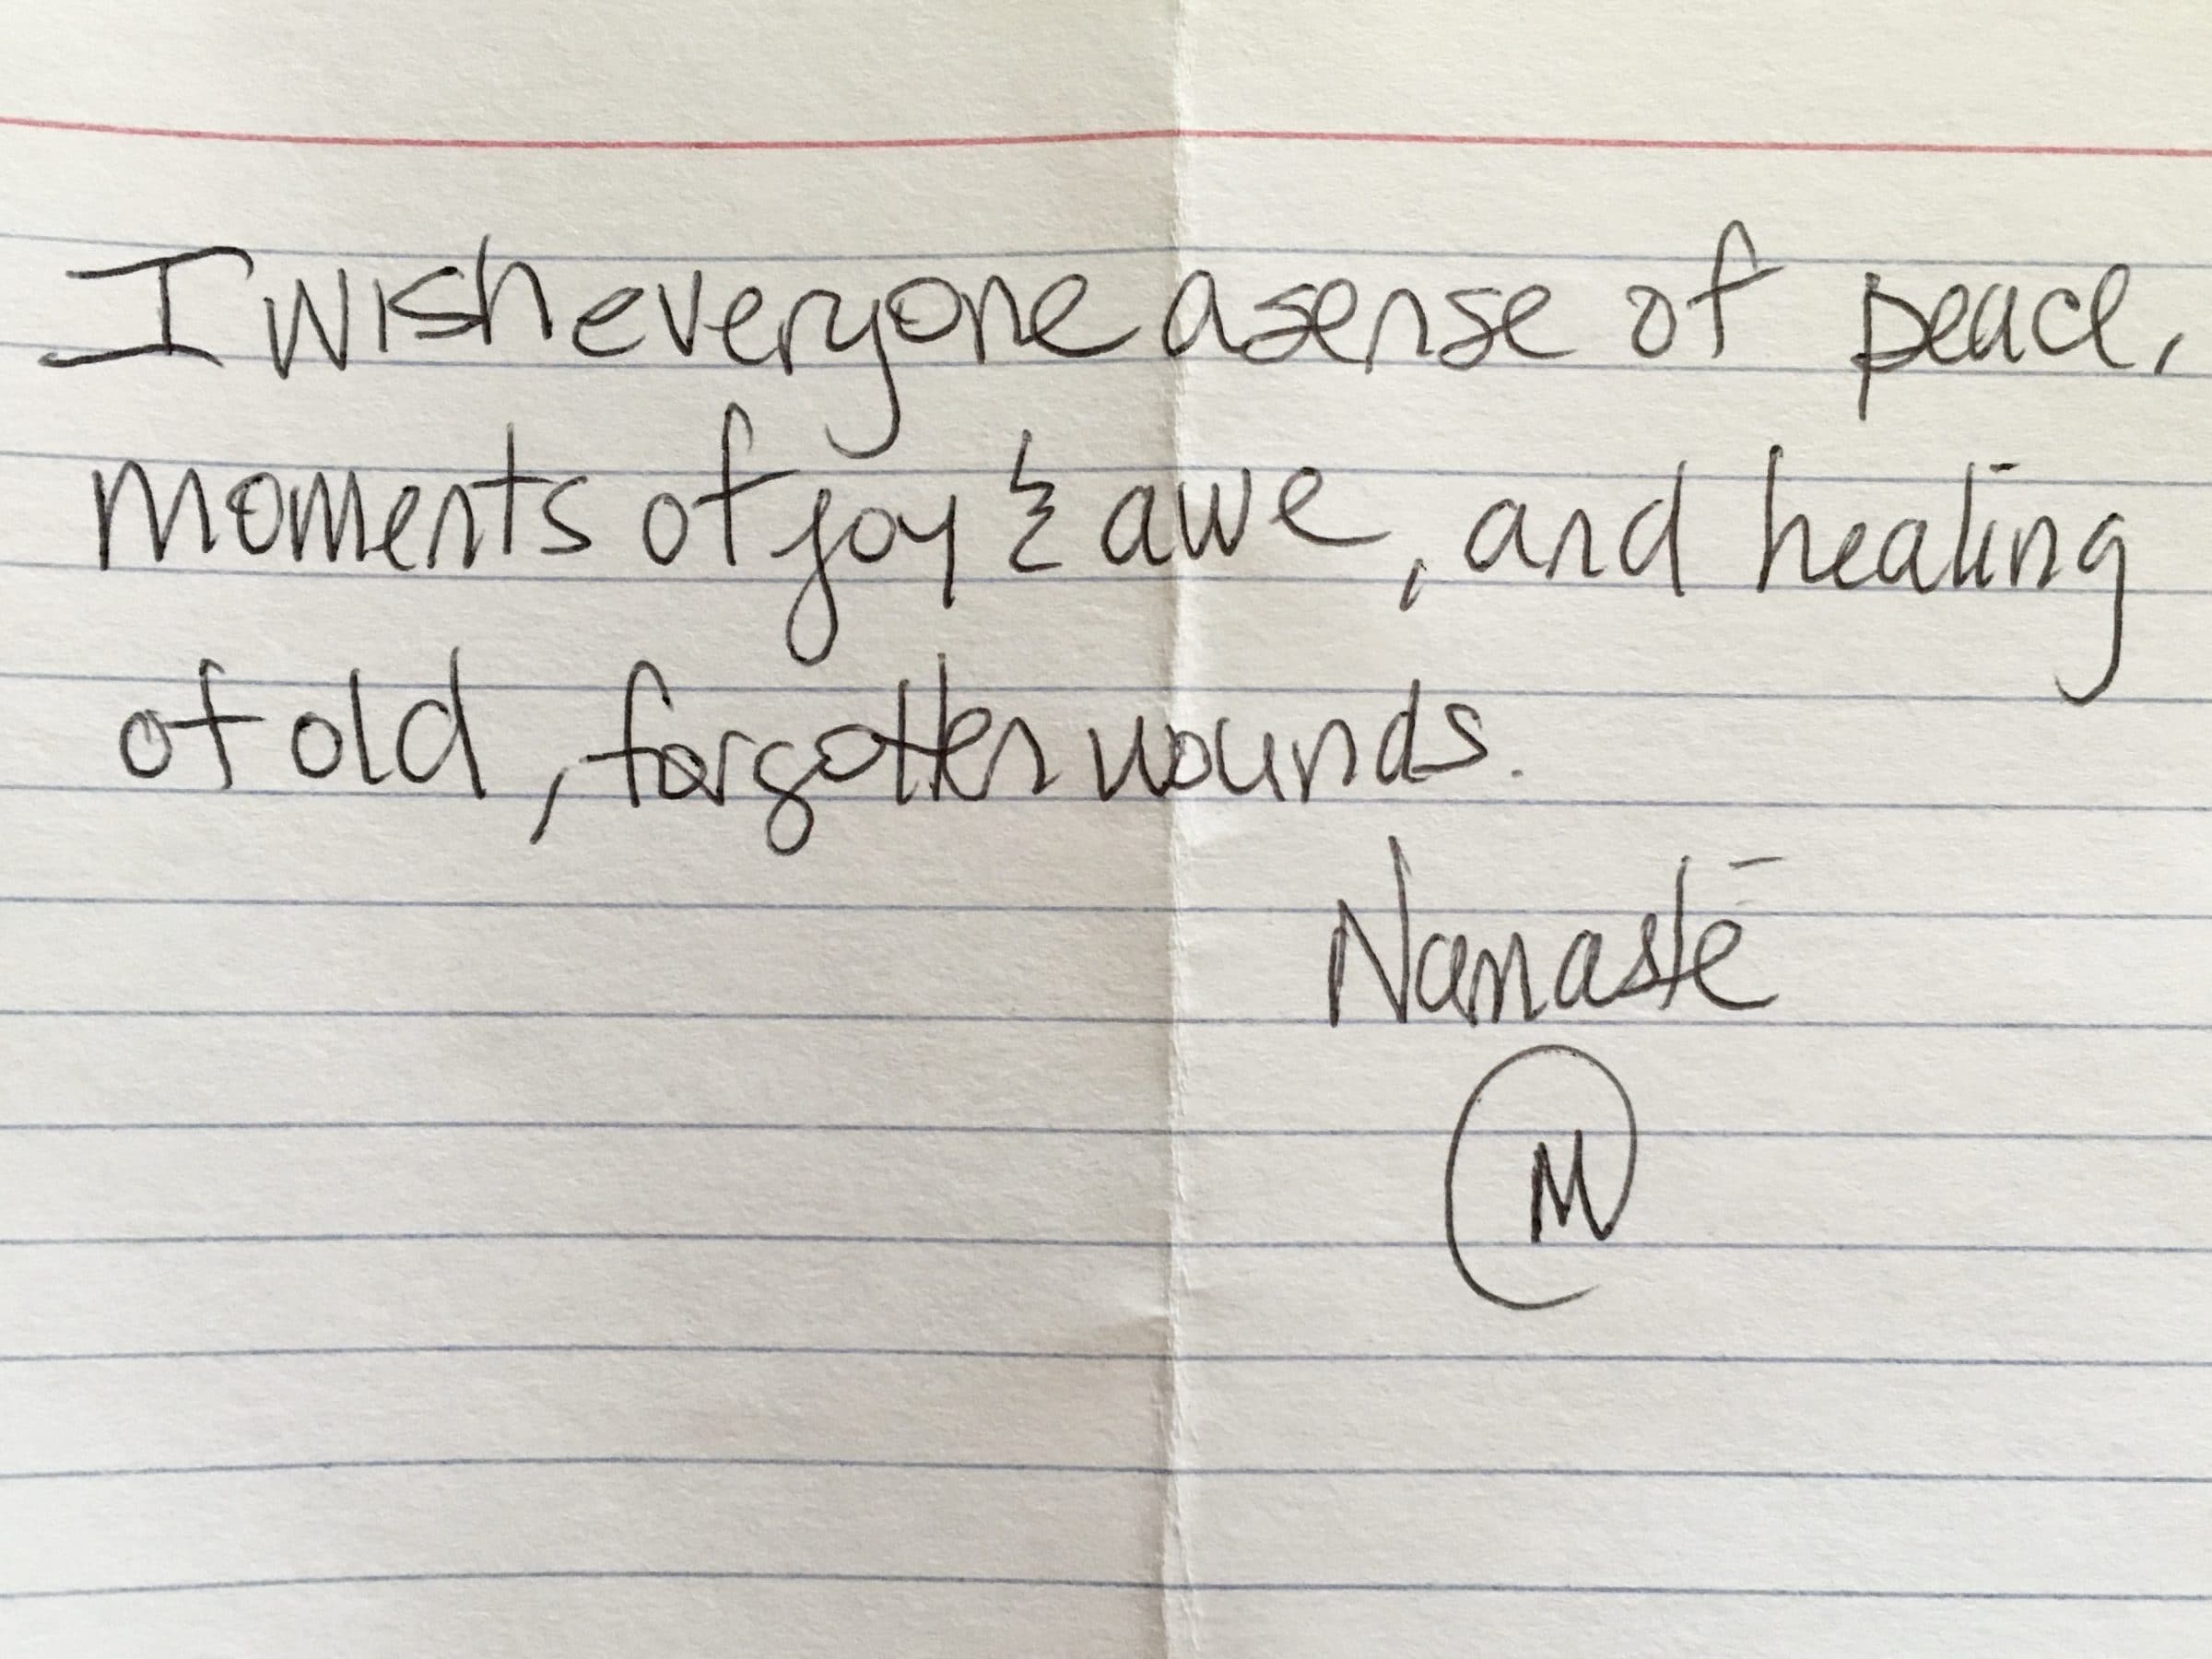 I wish everyone a sense of peace,
moments of joy & awe, and healing
of old, forgotten wounds.
Namaste
M